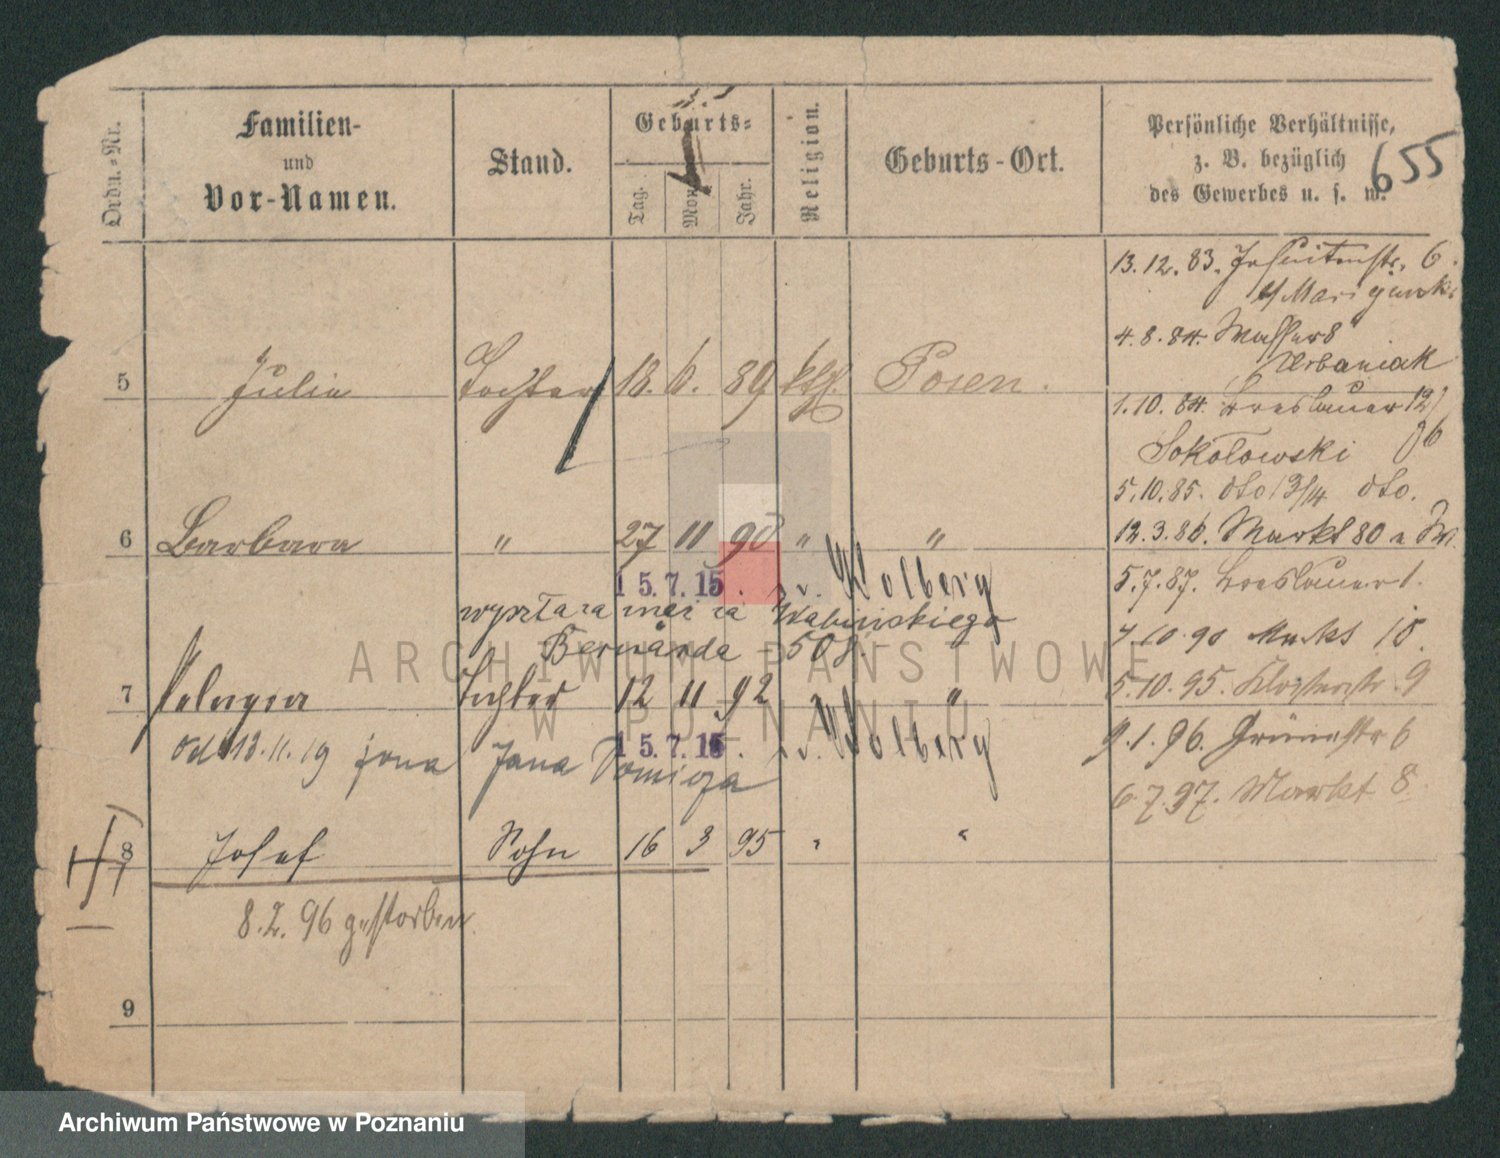 Ordn.-Nr.
Familien-
und
Vor-Namen.
Stand.
Geburts-
Tag.
Mon
Jahr.
Religion.
Geburts-Ort.
Persönliche Verhältnisse,
z. B. bezüglich
des Gewerbes u. s. w.
655
13.12.83. Jesuitenstr. 6.
4.8.84. Wasserstr 8
Urbaniak
5 Julia Tochter 18. 6. 89 kth. Posen.
1.10.84. Breslauer 12/
36
Sokołowski
5.10.85. dto 13/14 dto.
6 Barbara " 27 11 90 " "
12.3.86. Markt 80
15.7.15. n. Kolberg
5.7.87. Breslauer 1.
wyszła za mąż za Wabińskiego
Bernarda - 50 f.
7.10.90 Markt 10.
7 Pelagia Tochter 12 11 92 " "
5.10.95. Klosterstr. 9
od 13.11.19 żona Jana
15.7.15. n. Kolberg
9.1.96. Grünestr 6
6.7.97. Markt 8
8 Josef Sohn 16 3 95 " "
8.2.96 gestorben.
9
ARCHIWUM PAŃSTWOWE
W POZNANIU
Archiwum Państwowe w Poznaniu